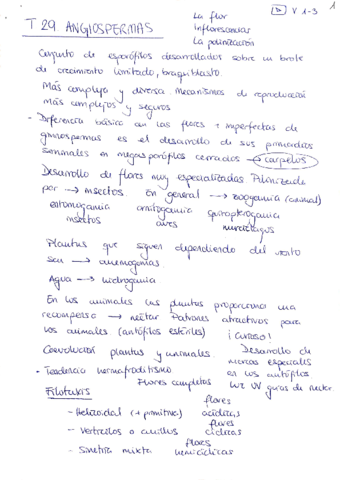 T 29 ANGIOSPERMAS
La flor
Inflorescencias
La polinización
V 1-3
1
Conjunto de esporófilos desarrollados sobre un brote
de crecimiento limitado, braquiblasto.
Más compleja y diversa. mecanismos de reproducción
más complejos y seguros
- Diferencia básica con las flores + imperfectas de
gimnospermas es el desarrollo de sus primordios
seminales en megasporófilos cerrados → carpelos
Desarrollo de flores muy especializadas. Polinizada
por → insectos. En general → zoogamia (animal)
entomogamia ornitogamia quiropterogamia
insectos aves murciélagos
Plantas que siguen dependiendo del viento
son → anemógamas.
Agua → hidrogamia
En los animales las plantas proporcionan una
recompensa → néctar Patrones atractivos para
los animales (antófilos estériles) ¡Curioso!
Coevolución plantas y animales. Desarrollo de
marcas especiales
- Tendencia hermafroditismo en los antófilos
Flores completas luz UV guías de néctar.
Filotaxis
flores
- Helicoidal (+ primitiva) acíclicas
flores
- Verticilos o anillos cíclicas
flores
- Simetría mixta hemicíclicas